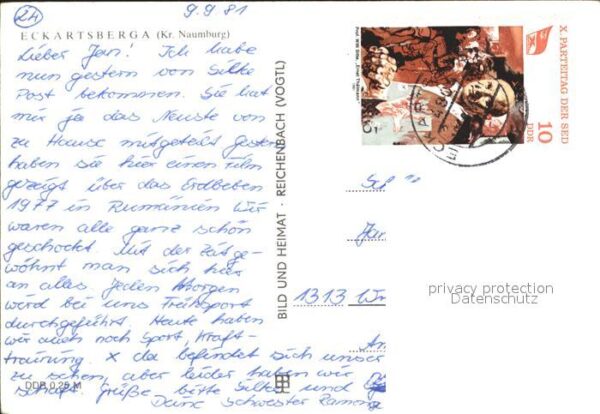 24
9.9.81
ECKARTSBERGA (Kr. Naumburg)
Lieber Jan! Ich habe
nun gestern von Silke
Post bekommen. Sie hat
mir ja das Neuste von
zu Hause mitgeteilt gestern
haben sie hier einen Film
gezeigt über das Erdbeben
1977 in Rumänien wir
waren alle ganz schön
geschockt. Mit der Zeit ge-
wöhnt man sich hier
an alles. Jeden Morgen
wird bei uns Frühsport
durchgeführt. Heute haben
wir auch noch Sport, Kraft-
training. x da befindet sich unser
zu sehen, aber leider haben wir
Grüße bitte Silke und
Deine Schwester Ramona
DDB 0,25 M
BILD UND HEIMAT · REICHENBACH (VOGTL)
Prof. Willi Sitte, „Ernst Thälmann"
X. PARTEITAG DER SED
10
DDR
Jan
1313
privacy protection
Datenschutz